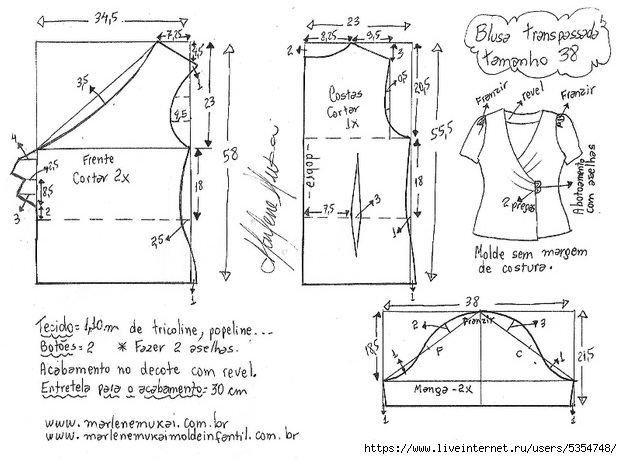 34,5
7,25
2,5
1
3,5
23
4,5
58
4
2,5
8,5
3
2
Frente
Cortar 2x
18
2,5
1
Marlene Mukai
23
8,25
9,5
2
3
0,5
Costas
Cortar
1x
20,5
55,5
-dobra-
18
7,5
3
1
1
Blusa transpassada
tamanho 38
Franzir
revel
Franzir
2 pregas
Abotoamento
com aselhas
Molde sem margem
de costura.
38
2
Franzir
3
18,5
F
C
21,5
1
1
Manga-2x
1
1
Tecido= 1,10.m de tricoline, popeline...
Botões= 2 * Fazer 2 aselhas.
Acabamento no decote com revel.
Entretela para o acabamento= 30 cm
www.marlenemukai.com.br
www.marlenemukaimoldeinfantil.com.br
https://www.liveinternet.ru/users/5354748/